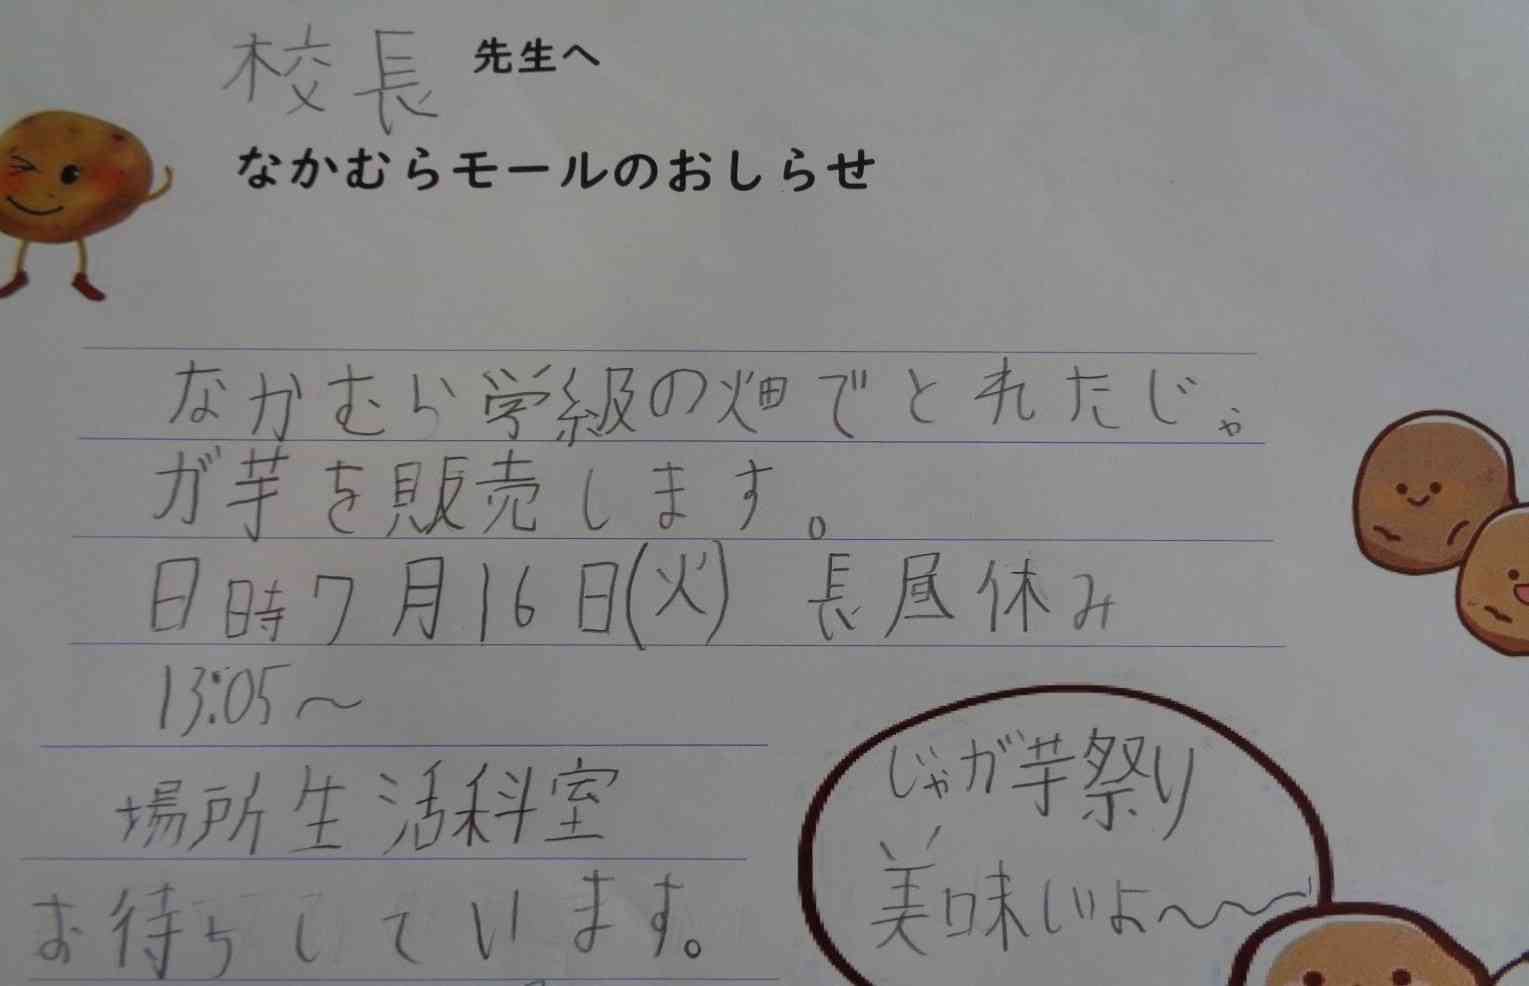 校長 先生へ
なかむらモールのおしらせ
なかむら学級の畑でとれたじゃ
ガ芋を販売します。
日時7月16日(火) 長昼休み
13:05〜
場所生活科室
お待ちしています。
じゃガ芋祭り
美味しいよ〜〜〜